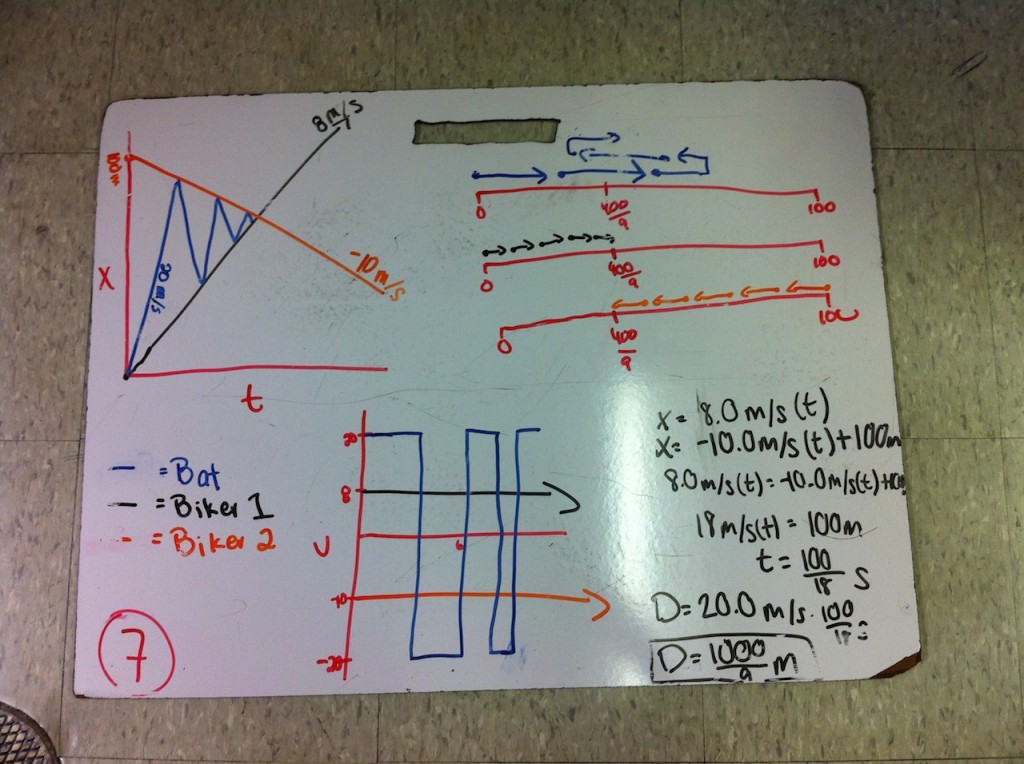 100m
8 m/s
X
20 m/s
-10 m/s
t
0
400/9
100
0
400/9
100
0
400/9
100
— = Bat
— = Biker 1
- = Biker 2
20
8
v
t
-10
-20
7
x = 8.0 m/s (t)
x = -10.0 m/s (t) + 100m
8.0 m/s (t) = -10.0 m/s (t) +
18 m/s (t) = 100 m
t = 100/18 s
D = 20.0 m/s · 100/18 s
D = 1000/9 m